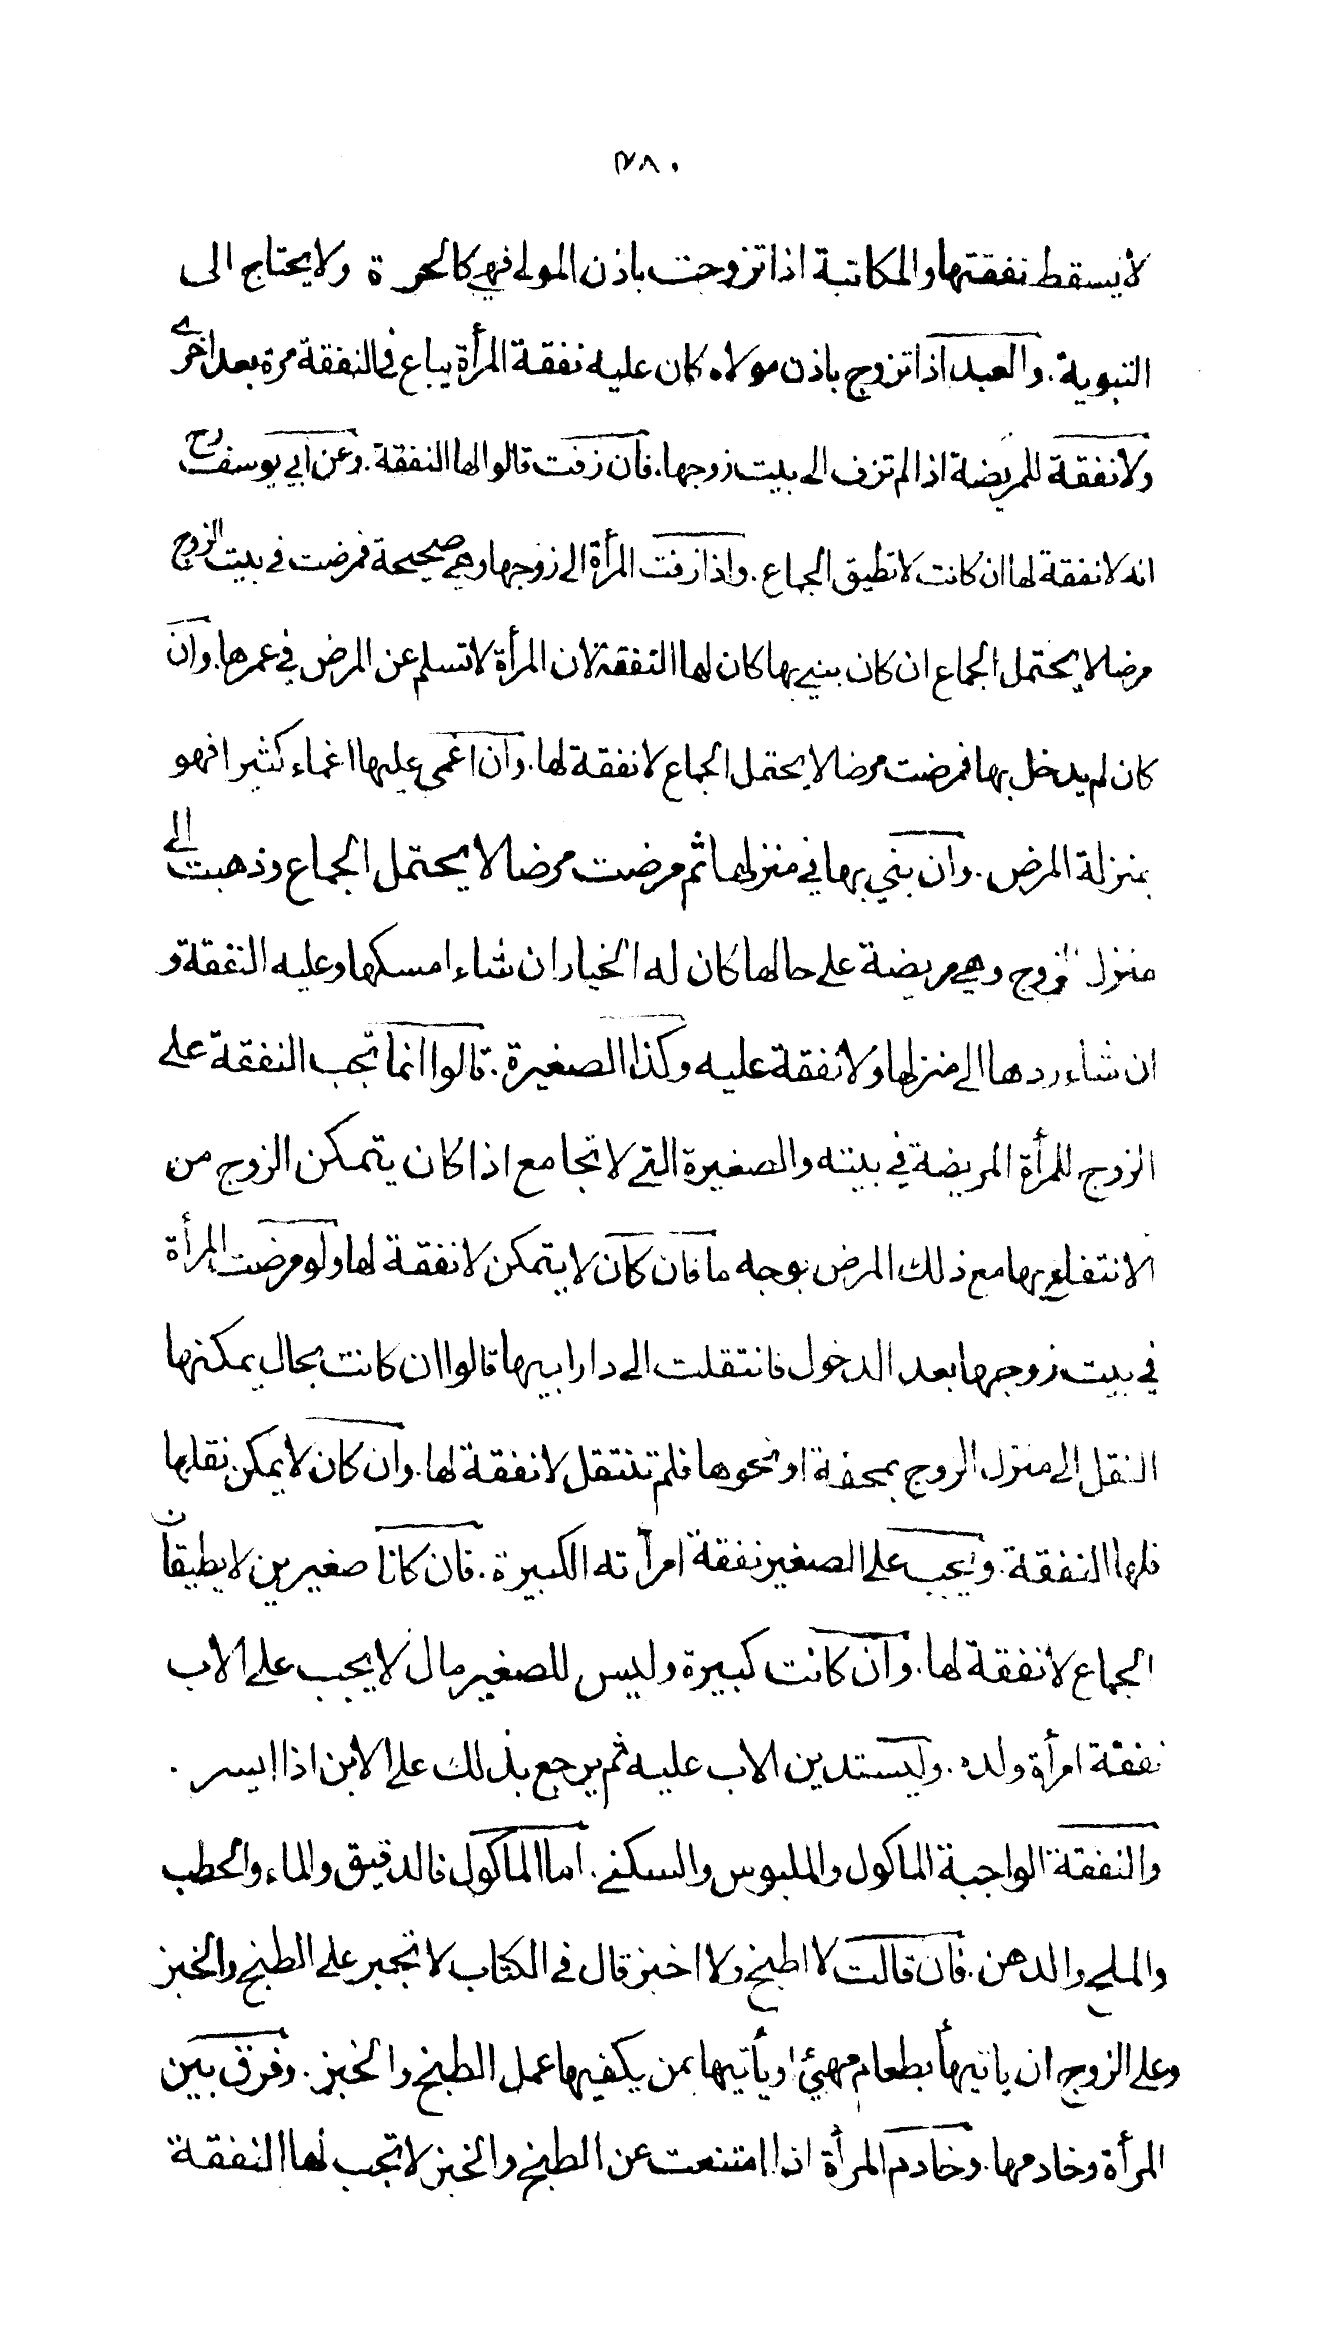 ٢٨٠
لا يسقط نفقتها والمكاتبة اذا تزوجت باذن المولى فهي كالحرة ولا يحتاج الى
التبوية . والعبد اذا تزوج باذن مولاه كان عليه نفقة المرأة يباع فى النفقة مرة بعد اخرى
ولا نفقة للمريضة اذا لم تزف الى بيت زوجها . فان زفت قالوا لها النفقة . وعن ابي يوسف رح
انه لا نفقة لها ان كانت لا تطيق الجماع . واذا زفت المرأة الى زوجها وهي صحيحة فمرضت في بيت الزوج
مرضا لا يحتمل الجماع ان كان بنى بها كان لها النفقة لان المرأة لا تسلم عن المرض في عمرها . وان
كان لم يدخل بها فمرضت مرضا لا يحتمل الجماع لا نفقة لها . وان اغمى عليها اغماء كثيرا فهو
بمنزلة المرض . وان بنى بها في منزلها ثم مرضت مرضا لا يحتمل الجماع وذهبت الى
منزل الزوج وهي مريضة على حالها كان له الخيار ان شاء امسكها وعليه النفقة و
ان شاء ردها الى منزلها ولا نفقة عليه وكذا الصغيرة . قالوا انما تجب النفقة على
الزوج للمرأة المريضة في بيته والصغيرة التي لا تجامع اذا كان يتمكن الزوج من
الانتفاع بها مع ذلك المرض بوجه ما فان كان لا يتمكن لا نفقة لها ولو مرضت المرأة
في بيت زوجها بعد الدخول فانتقلت الى دار ابيها قالوا ان كانت بحال يمكنها
النقل الى منزل الزوج بمحفة او نحوها فلم تنتقل لا نفقة لها . وان كان لا يمكن نقلها
فلها النفقة . ويجب على الصغير نفقة امرأته الكبيرة . فان كانا صغيرين لا يطيقان
الجماع لا نفقة لها . وان كانت كبيرة وليس للصغير مال لا يجب على الاب
نفقة امرأة ولده . وليستدين الاب عليه ثم يرجع بذلك على الابن اذا ايسر .
والنفقة الواجبة الماكول والملبوس والسكنى . اما الماكول فالدقيق والماء والحطب
والملح والدهن . فان قالت لا اطبخ ولا اخبز قال في الكتاب لا تجبر على الطبخ والخبز
وعلى الزوج ان ياتيها بطعام مهيئ او يأتيها بمن يكفيها عمل الطبخ والخبز . وفرق بين
المرأة وخادمها . وخادم المرأة اذا امتنعت عن الطبخ والخبز لا تجب لها النفقة